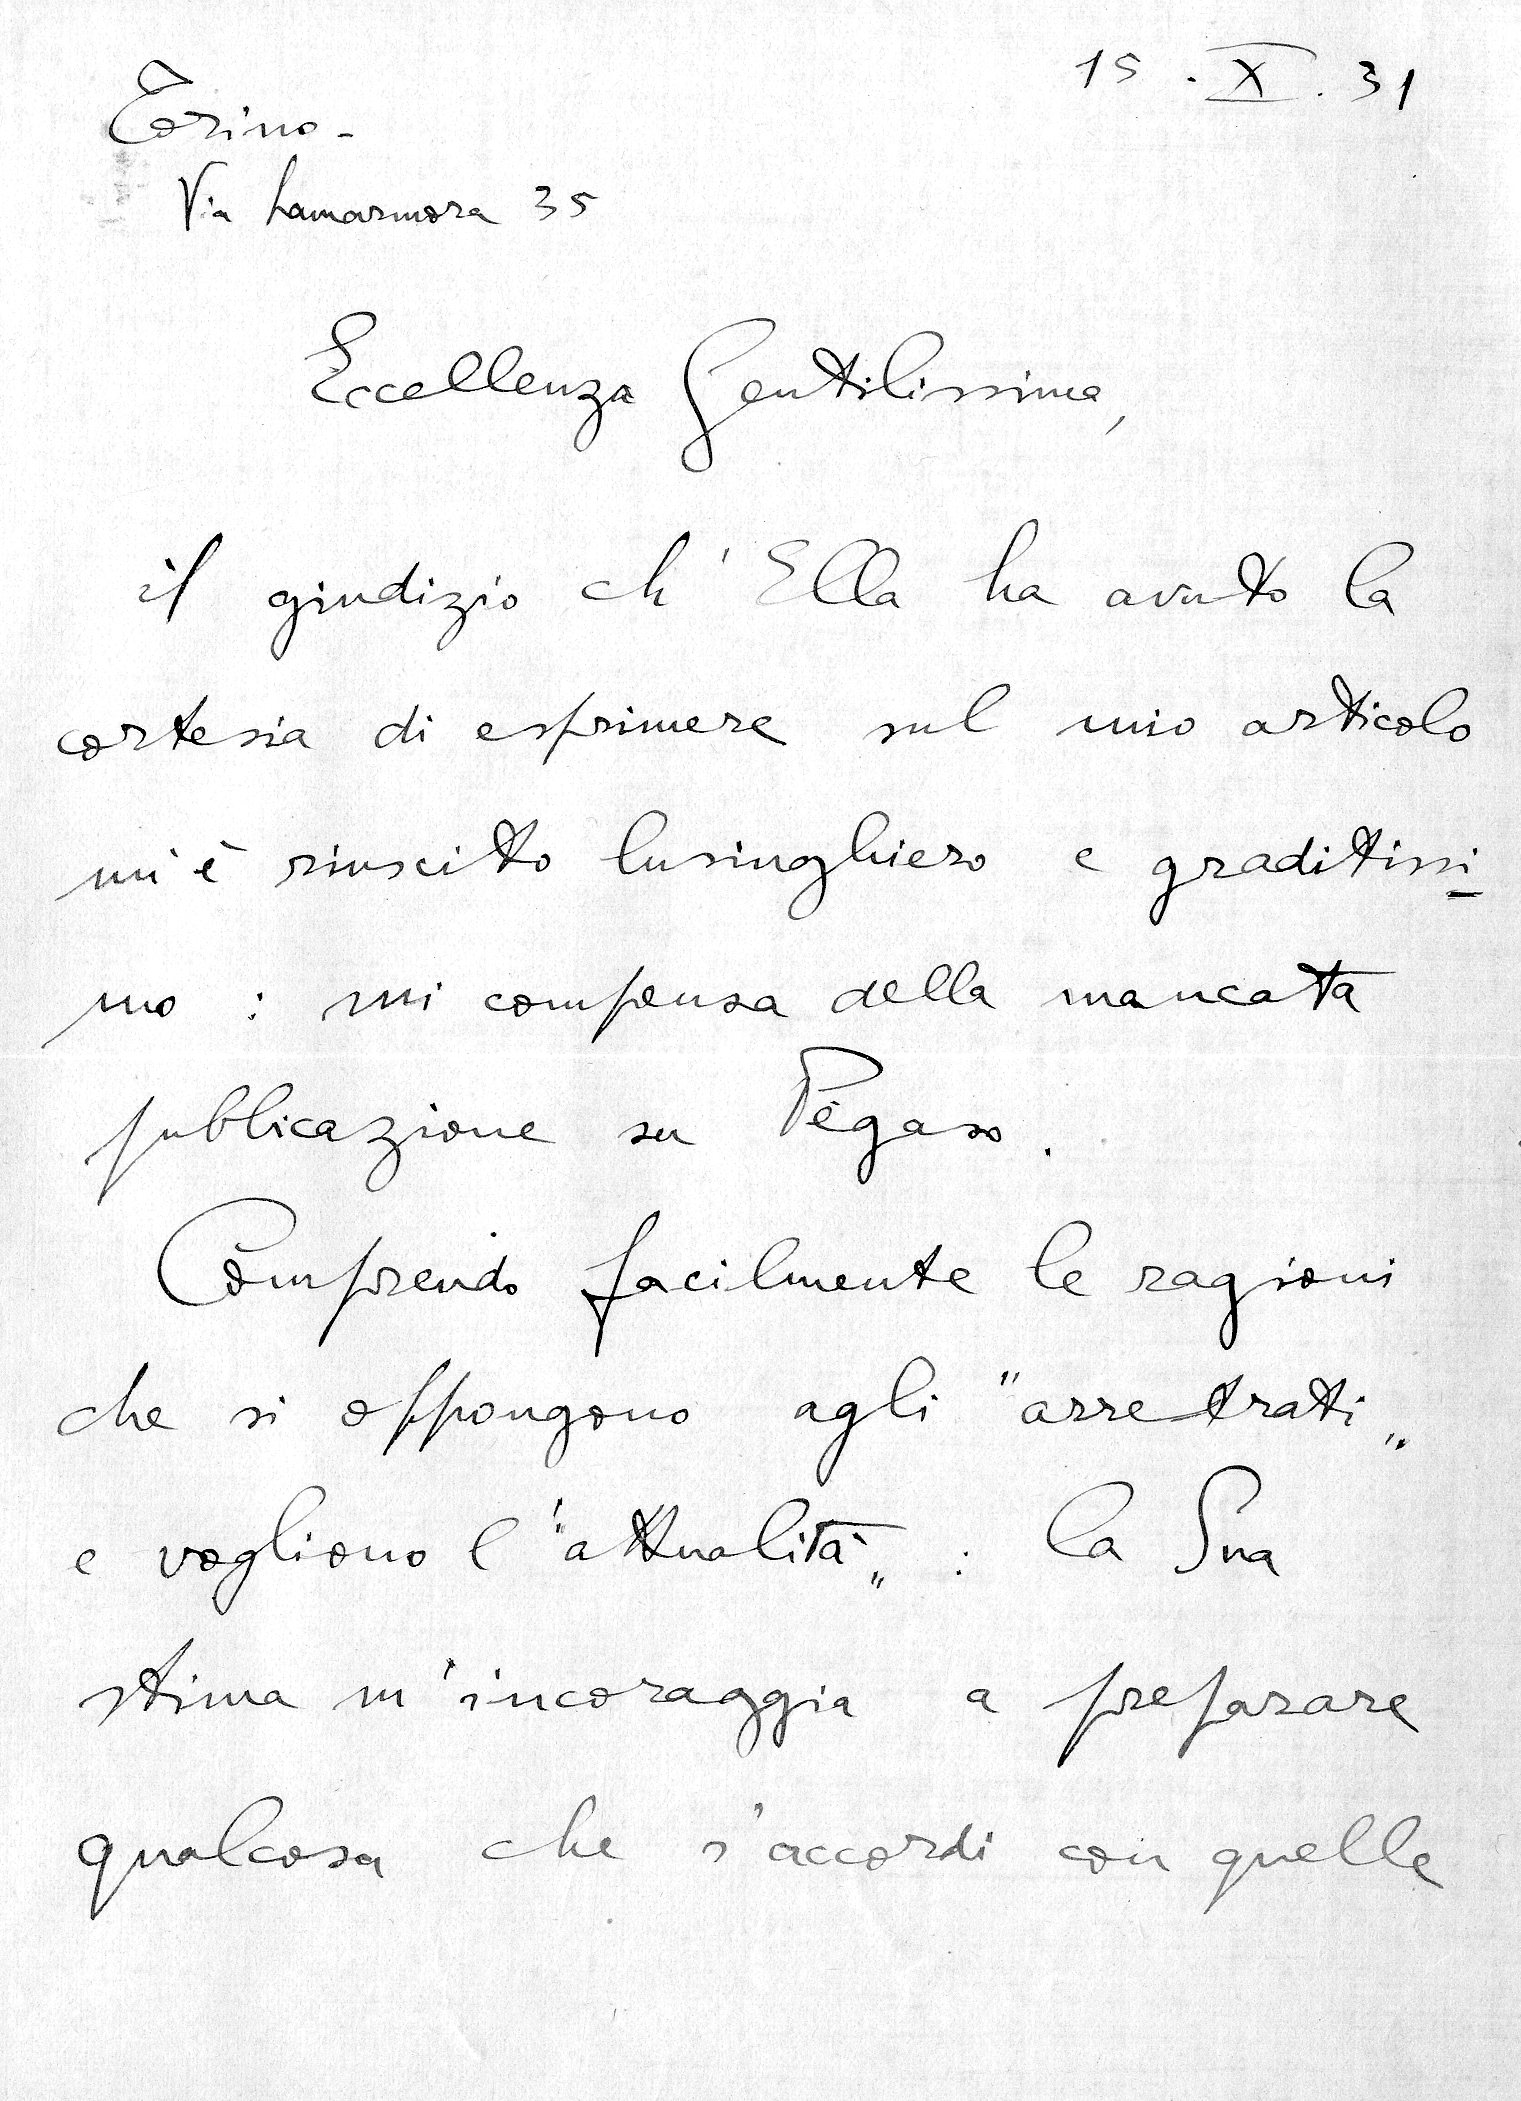 15 . X . 31
Torino -
Via Lamarmora 35
Eccellenza Gentilissima,
il giudizio ch'Ella ha avuto la
cortesia di esprimere sul mio articolo
mi è riuscito lusinghiero e graditissi
mo : mi compensa della mancata
pubblicazione su Pègaso .
Comprendo facilmente le ragioni
che si oppongono agli "arretrati„
e vogliono l'"attualità„ : la Sua
stima m'incoraggia a preparare
qualcosa che s'accordi con quelle